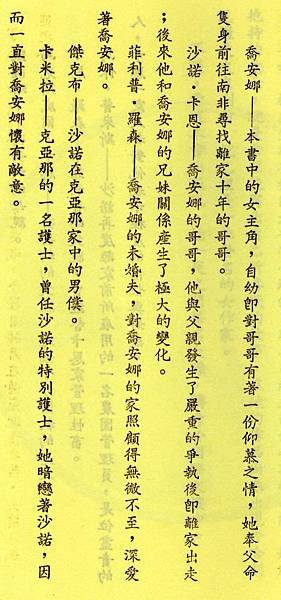 喬安娜——本書中的女主角，自幼即對哥哥有著一份仰慕之情，她奉父命
隻身前往南非尋找離家十年的哥哥。
沙諾·卡恩——喬安娜的哥哥，他與父親發生了嚴重的爭執後即離家出走
；後來他和喬安娜的兄妹關係產生了極大的變化。
菲利普·羅森——喬安娜的未婚夫，對喬安娜的家照顧得無微不至，深愛
著喬安娜。
傑克布——沙諾在克亞那家中的男僕。
卡米拉——克亞那的一名護士，曾任沙諾的特別護士，她暗戀著沙諾，因
而一直對喬安娜懷有敵意。